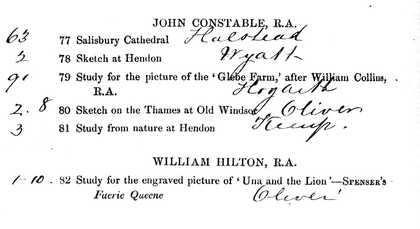 JOHN CONSTABLE, R.A.
63 77 Salisbury Cathedral Halstead
2 78 Sketch at Hendon Wyatt
9 79 Study for the picture of the ‘Glebe Farm,’ after William Collins,
R.A. Hogarth
2.8 80 Sketch on the Thames at Old Windsor Oliver
3 81 Study from nature at Hendon Kemp.
WILLIAM HILTON, R.A.
1-10. 82 Study for the engraved picture of ‘Una and the Lion’—SPENSER'S
Faerie Queene Oliver